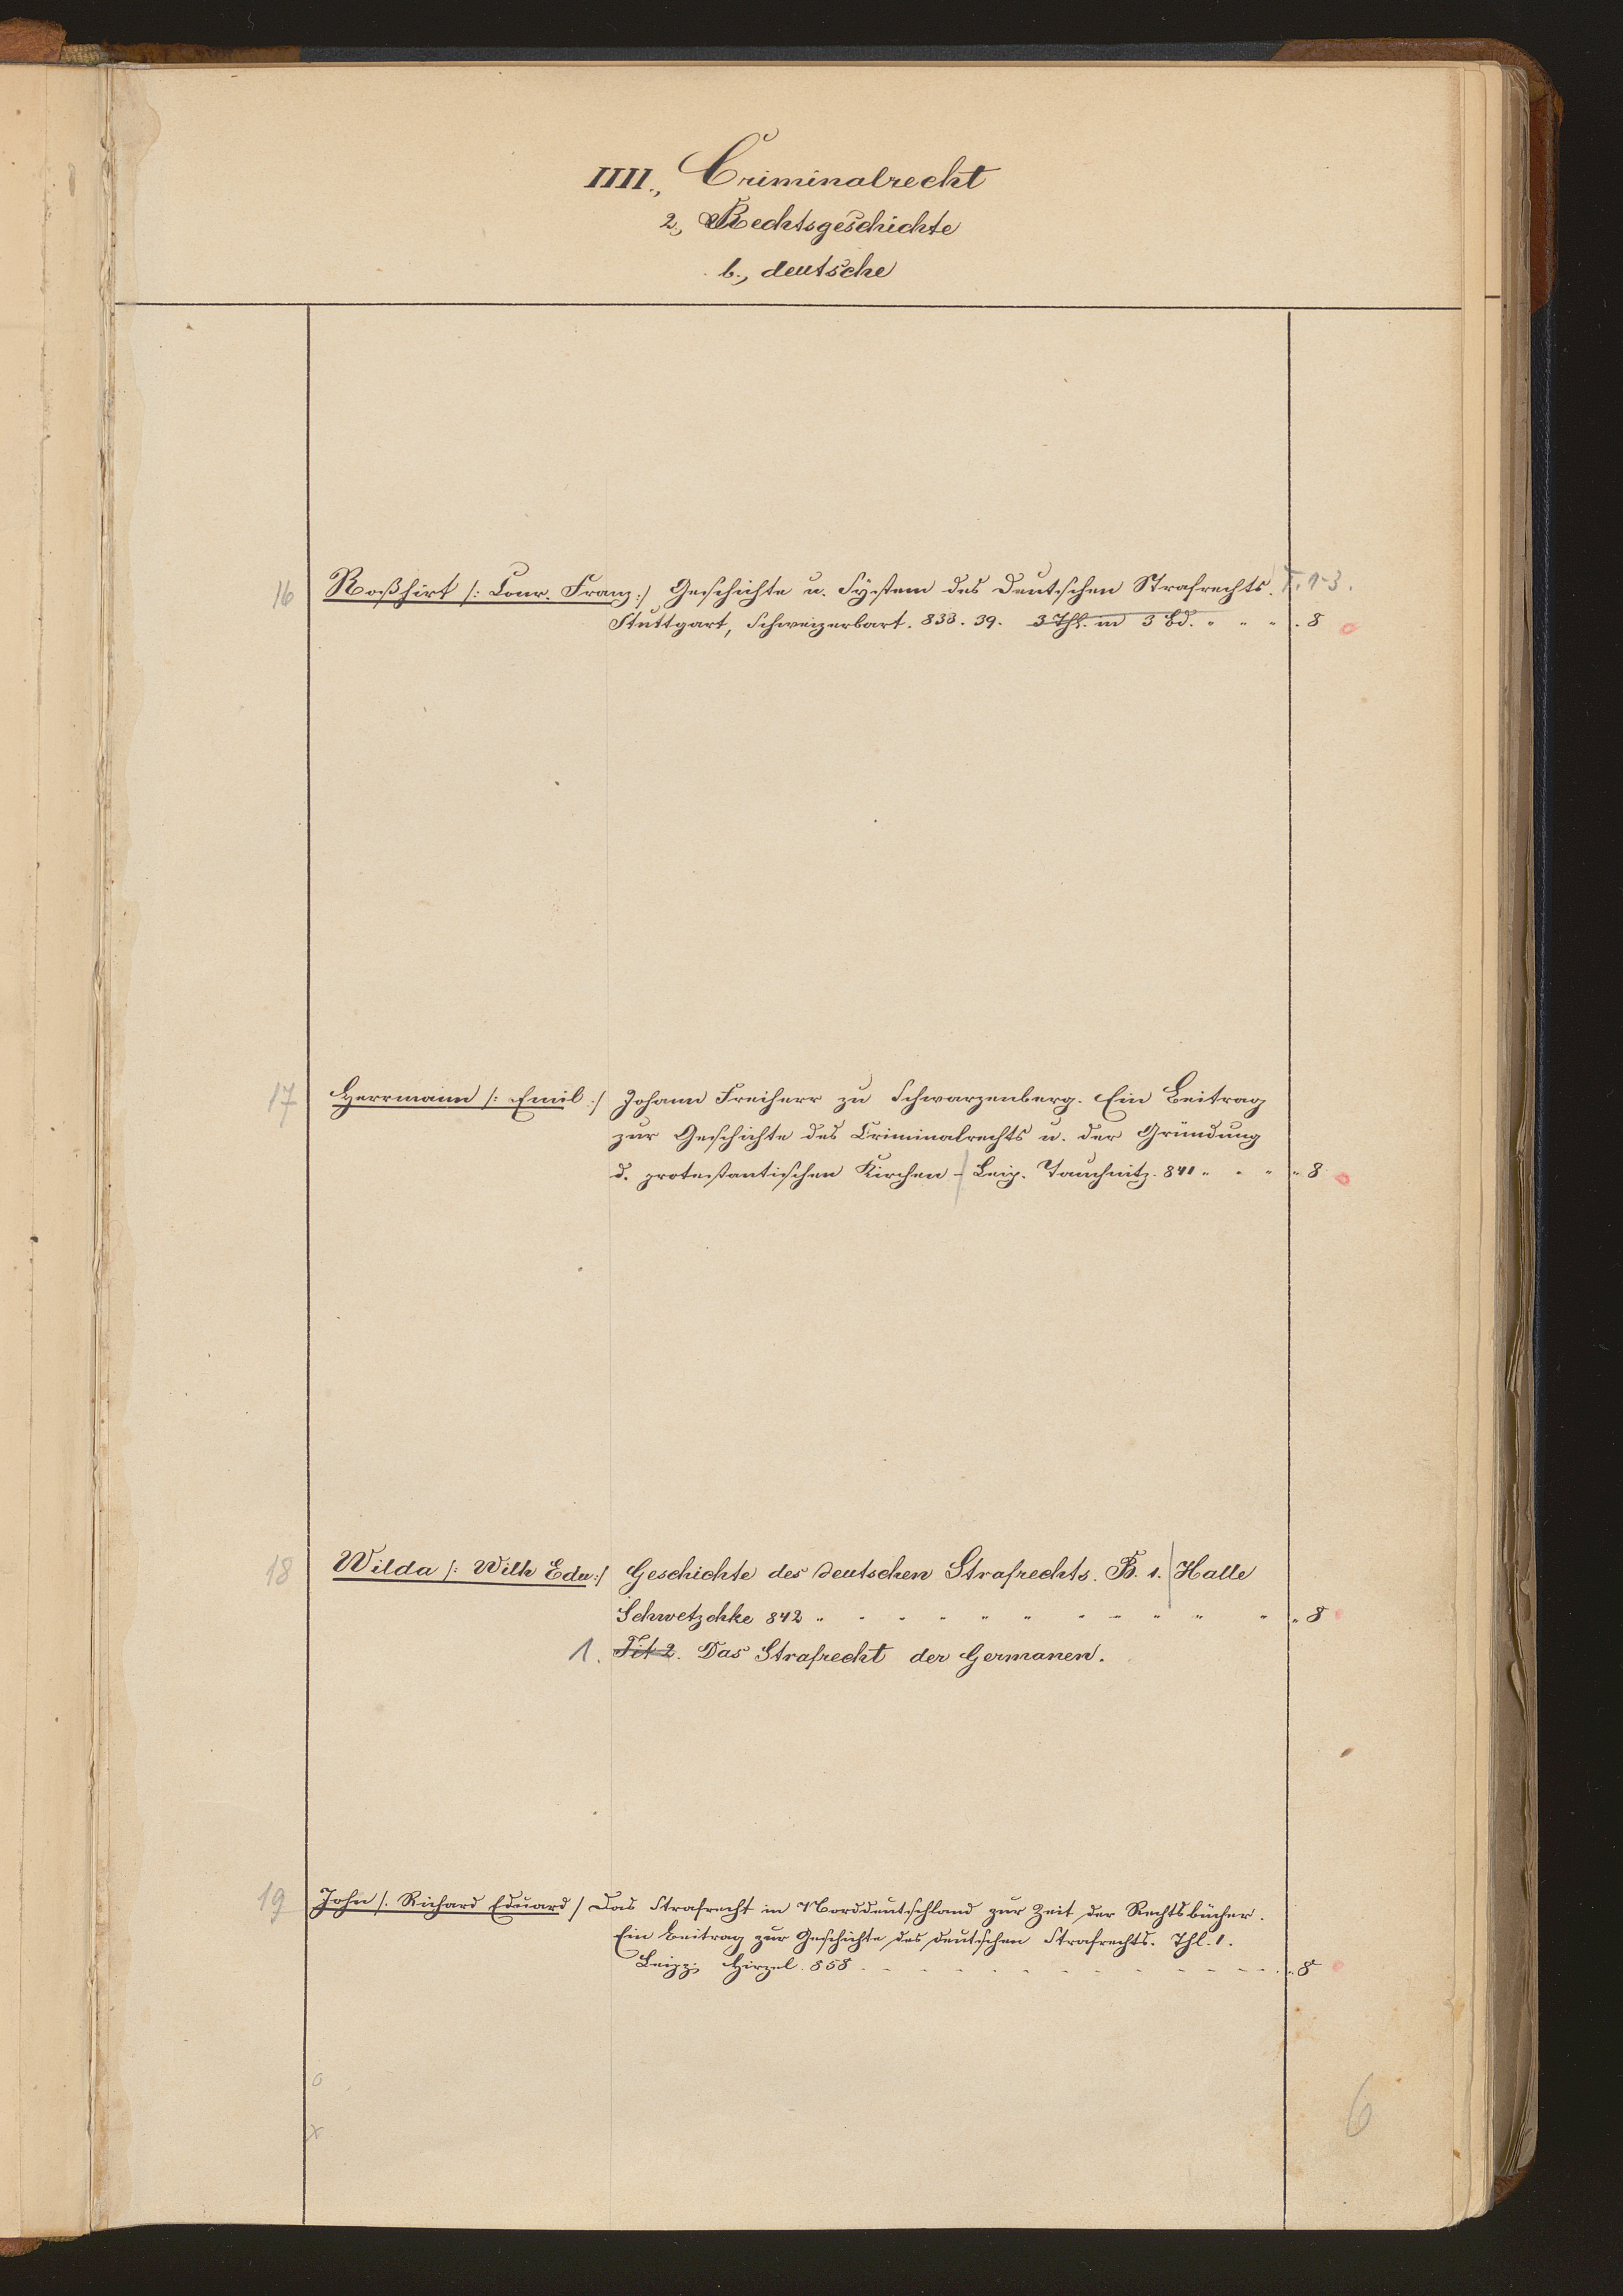 IIII., Criminalrecht
2., Rechtsgeschichte
b., deutsche
16 Roßhirt /: Conr. Franz :/ Geschichte u. System des deutschen Strafrechts. T. 1-3.
Stuttgart, Schweizerbart. 838. 39. 3 Thl. in 3 Bd. " " " . 8
17 Herrmann /: Emil :/ Johann Freiherr zu Schwarzenberg. Ein Beitrag
zur Geschichte des Criminalrechts u. der Gründung
d. protestantischen Kirchen - Leip. Tauchnitz. 841 " " " " 8
18 Wilda /: Wilh Edu :/ Geschichte des deutschen Strafrechts. B. 1. Halle
Schwetzchke 842 " " " " " " " " " " " " 8
1. Tit 2. Das Strafrecht der Germanen.
19 John /. Richard Eduard / Das Strafrecht in Norddeutschland zur Zeit der Rechtsbücher.
Ein Beitrag zur Geschichte des deutschen Strafrechts. Thl. 1.
Leipz. Hirzel. 858 . - - - - - - - - - - - . 8
6